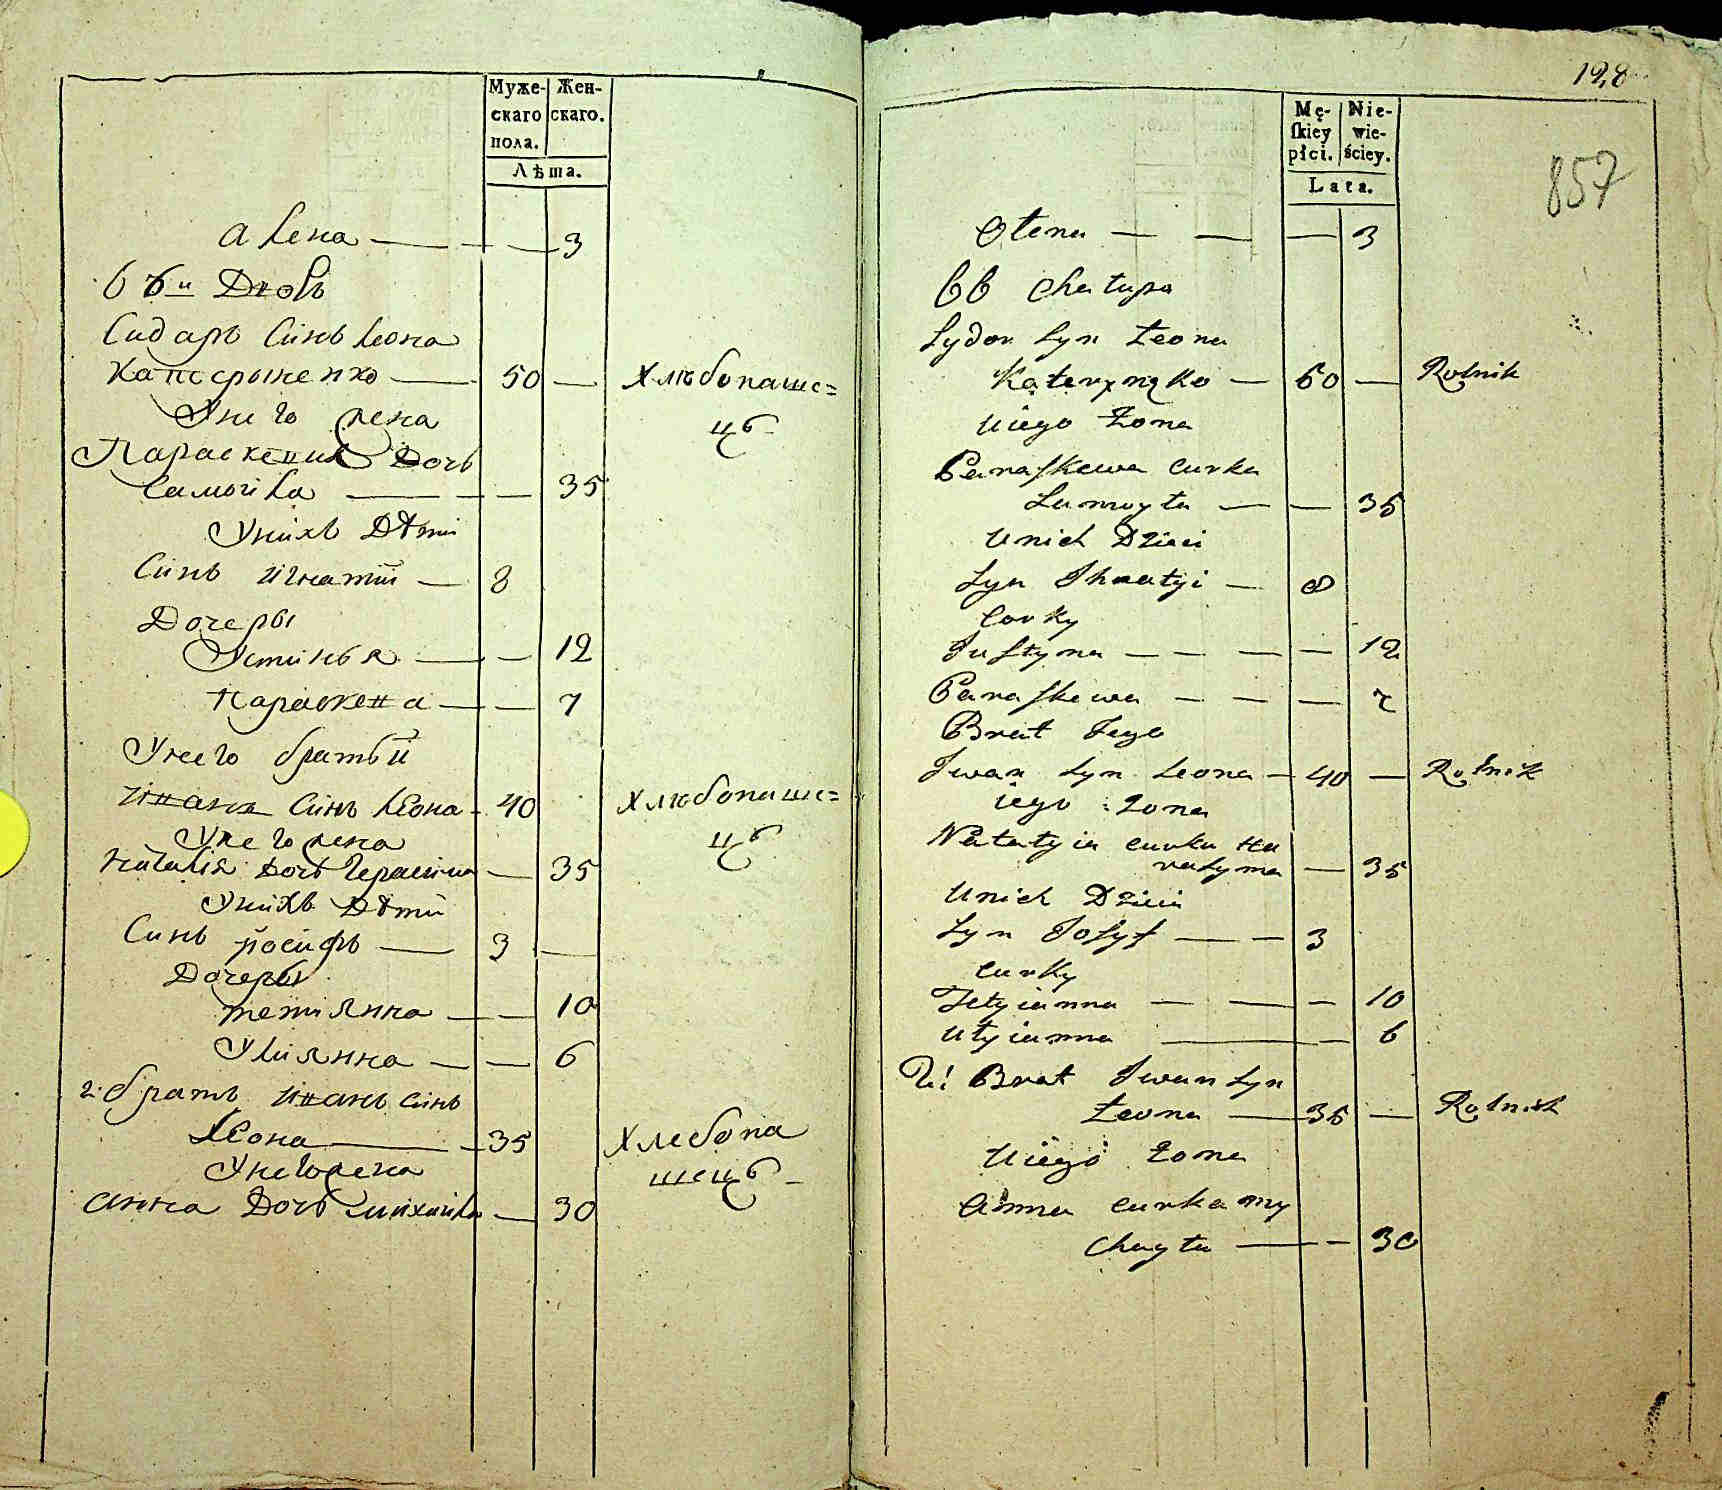 Муже-
скаго
пола.
Жен-
скаго.
Лѣта.
Алена — 3
в 6й Дворъ
Сидаръ Синъ Леона
Катерыненко — 50 — Хлѣбопаше=
Унего жена цъ
Параскевия Дочъ
Самойла — — 35
Унихъ Дѣти
Синъ Игнатій — 8
Дочеры
Устинья — — 12
Параскева — — 7
Унего братьй
Иванъ Синъ Леона - 40 Хлѣбопаше=
Унего жена цъ
Наталія Дочъ Герасима — 35
Унихъ Дѣти
Синъ Йосифъ — 3 —
Дочеры
Тетиянна — — 10
Улиянна — — 6
2: братъ Иванъ Синъ
Леона — 35 Хлебопа
Унего жена шецъ
Анна Дочъ Михайла — 30
128
857
Mę-
ſkiey
płci.
Nie-
wie-
ściey.
Lata.
Olena — — — 3
66 Chatupa
Sydor Syn Leona
Katerynzko — 60 — Rolnik
Uiego Zona
Paraſkewa Curka
Samoyla — — 35
Unich Dzieci
Syn Ihnatyi — 8
Corky
Juſtyna — — — — 12
Paraſkewa — — — 7
Brat Jego
Iwan Syn Leona — 40 — Rolnik
iego Zona
Natalyia curka Ha
rasyma — 35
Unich Dzieci
Syn Joſyf — — 3
Curky
Tetyianna — — — 10
Ulyianna — — 6
2! Brat Iwan Syn
Leona — 35 — Rolnik
Uiego Zona
Anna curka My
chayla — — 30